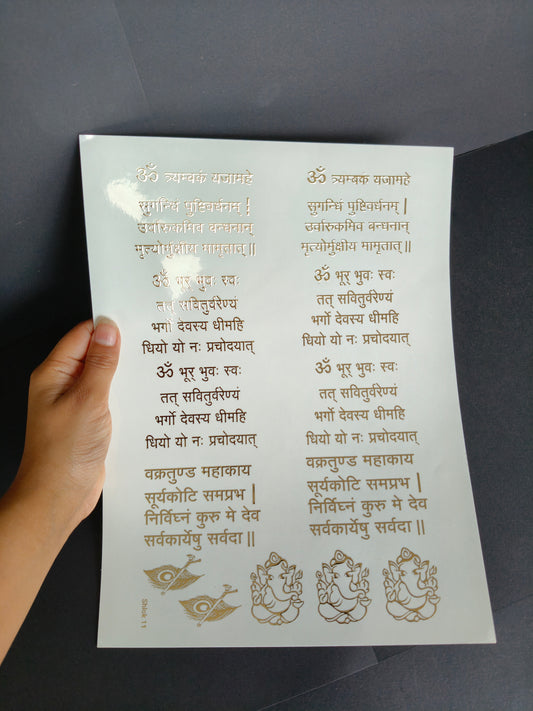 ॐ त्र्यम्बकं यजामहे
सुगन्धिं पुष्टिवर्धनम् |
उर्वारुकमिव बन्धनान्
मृत्योर्मुक्षीय मामृतात् ||
ॐ भूर् भुवः स्वः
तत् सवितुर्वरेण्यं
भर्गो देवस्य धीमहि
धियो यो नः प्रचोदयात्
ॐ भूर् भुवः स्वः
तत् सवितुर्वरेण्यं
भर्गो देवस्य धीमहि
धियो यो नः प्रचोदयात्
वक्रतुण्ड महाकाय
सूर्यकोटि समप्रभ |
निर्विघ्नं कुरु मे देव
सर्वकार्येषु सर्वदा ||
ॐ त्र्यम्बकं यजामहे
सुगन्धिं पुष्टिवर्धनम् |
उर्वारुकमिव बन्धनान्
मृत्योर्मुक्षीय मामृतात् ||
ॐ भूर् भुवः स्वः
तत् सवितुर्वरेण्यं
भर्गो देवस्य धीमहि
धियो यो नः प्रचोदयात्
ॐ भूर् भुवः स्वः
तत् सवितुर्वरेण्यं
भर्गो देवस्य धीमहि
धियो यो नः प्रचोदयात्
वक्रतुण्ड महाकाय
सूर्यकोटि समप्रभ |
निर्विघ्नं कुरु मे देव
सर्वकार्येषु सर्वदा ||
Shlok 11